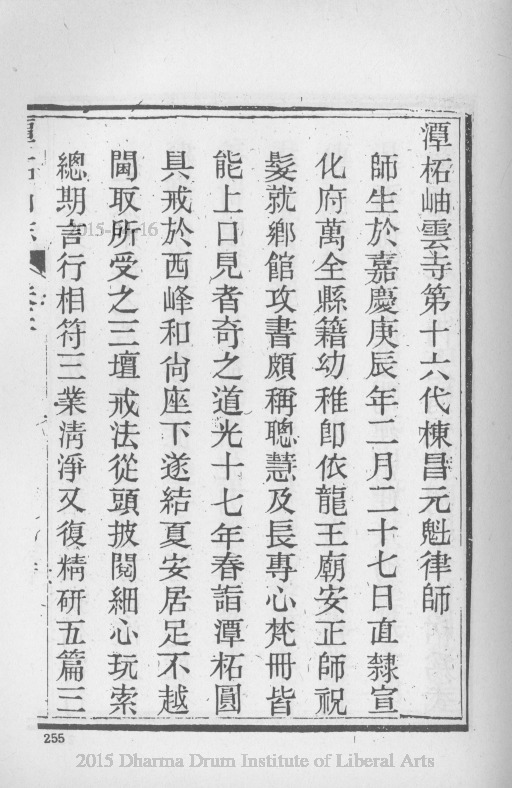 潭柘岫雲寺第十六代棟昌元魁律師
師生於嘉慶庚辰年二月二十七日直隸宣
化府萬全縣籍幼稚卽依龍王廟安正師祝
髮就鄉館攻書頗稱聰慧及長專心梵冊皆
能上口見者奇之道光十七年春詣潭柘圓
具戒於西峰和尙座下遂結夏安居足不越
閫取所受之三壇戒法從頭披閱細心玩索
總期言行相符三業淸淨又復精研五篇三
255
2015 Dharma Drum Institute of Liberal Arts